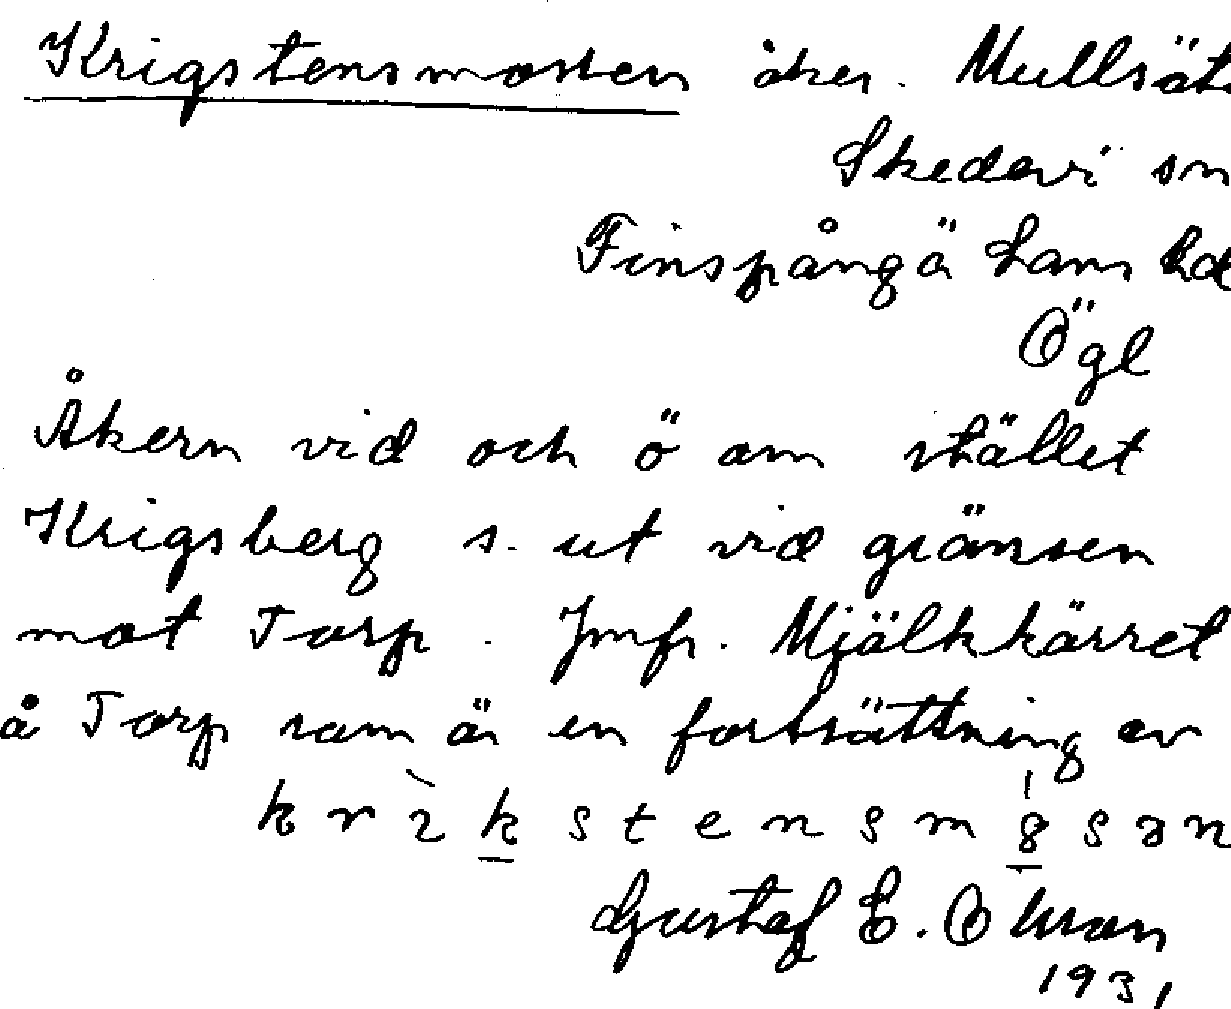 Krigstensmossen åker. Mullsät
Skedevi sn
Finspånga Läns hd
Ögl
Åkern vid och ö om stället
Krigsberg s. ut vid gränsen
mot Torp. Jmfr. Mjälkkärret
å Torp som är en fortsättning av
krìkstensmɷsən
Gustaf E. Olsson
1931